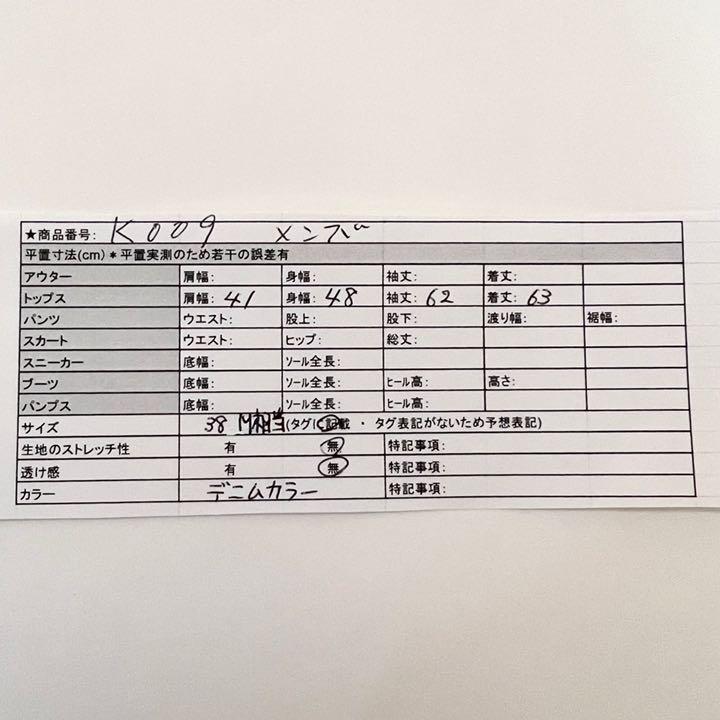 ★商品番号: K009 メンズ
平置寸法(cm)*平置実測のため若干の誤差有
アウター 肩幅: 身幅: 袖丈: 着丈:
トップス 肩幅: 41 身幅: 48 袖丈: 62 着丈: 63
パンツ ウエスト: 股上: 股下: 渡り幅: 裾幅:
スカート ウエスト: ヒップ: 総丈:
スニーカー 底幅: ソール全長:
ブーツ 底幅: ソール全長: ヒール高: 高さ:
パンプス 底幅: ソール全長: ヒール高:
サイズ 38 M相当(タグに記載 ・ タグ表記がないため予想表記)
生地のストレッチ性 有 無 特記事項:
透け感 有 無 特記事項:
カラー デニムカラー 特記事項: